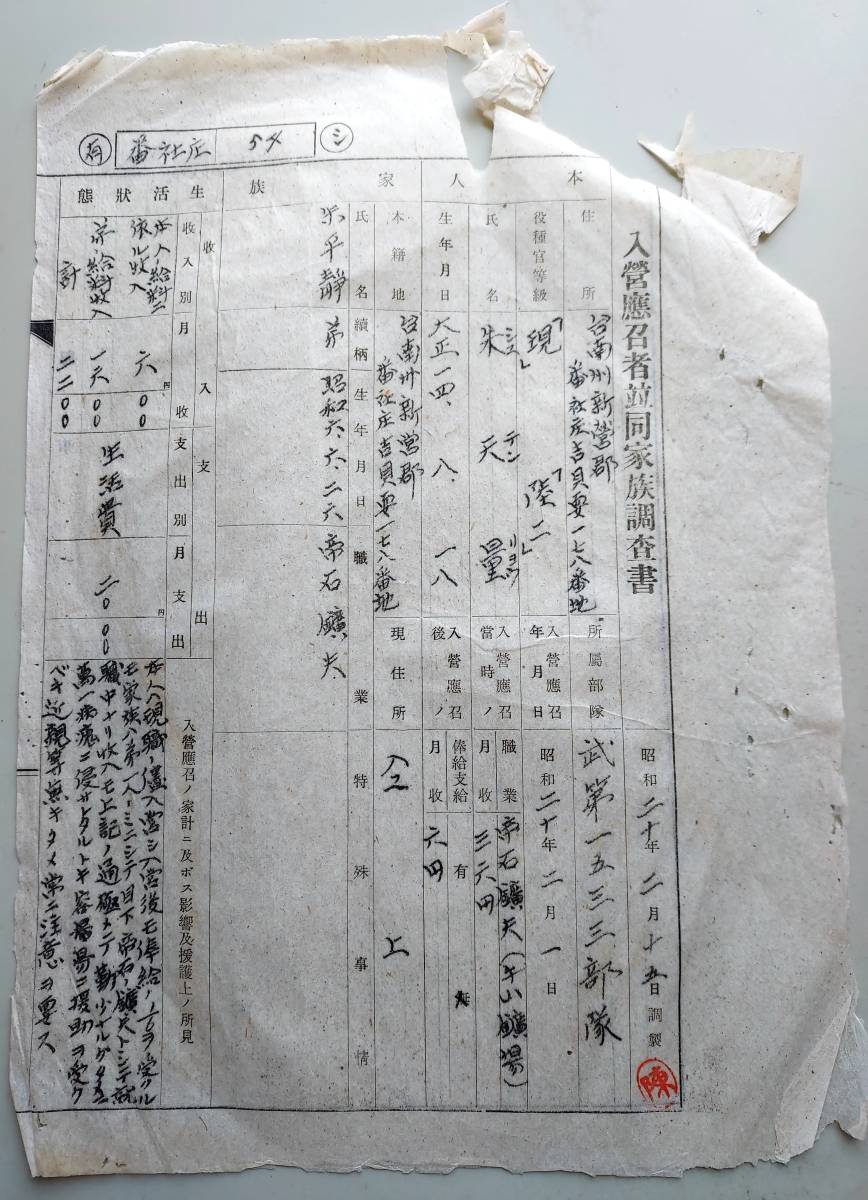 入營應召者竝同家族調查書
昭和二十年二月十五日調製
陳
本人
住所
台南州新營郡
番社庄吉貝耍一七八番地
所屬部隊
武第一五三三部隊
役種官等級
「現」
「陸二」
入營應召
年月日
昭和二十年二月一日
氏名
シュ テン リョウ
朱天量
入營應召
當時ノ
職業
帝石鑛夫(牛山鑛場)
月收
三六円
生年月日
大正一四、八、一八
入營應召
後ノ
俸給支給
有 無
月收
六円
家族
本籍地
台南州新營郡
番社庄吉貝耍一七八番地
現住所
仝上
氏名
續柄
生年月日
職業
特殊事情
朱平靜
弟
昭和六、六、二六
帝石鑛夫
生活狀態
收入
支出
收入別
月收
支出別
月支出
入營應召ノ家計ニ及ボス影響及援護上ノ所見
本人ノ給料ニ
依ル收入
六 円 〇〇
弟ノ給料收入
一六 〇〇
計
二二 〇〇
生活費
二〇 円 〇〇
本人ハ現職ノ儘入營シ入營後モ俸給ノ
モ家族ハ弟一人ノミニシテ目下帝石ノ鑛夫トシテ就
職中ナリ收入モ上記ノ通極メテ勘少ナルガタメニ
萬一病魔ニ侵サレタルトキ容易ニ援助ヲ受ク
ベキ近親等無キタメ常ニ注意ヲ要ス
有
番社庄
54
シ